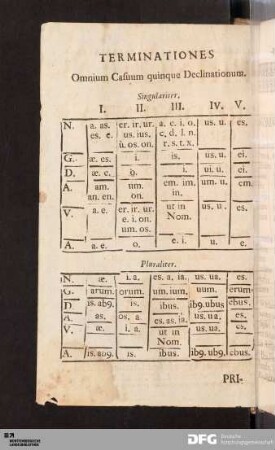 TERMINATIONES
Omnium Casuum quinque Declinationum.
Singulariter.
I. II. III. IV. V.
N. a. as. er. ir. ur. a. e. i. o. us. u. es.
es. e. us. ius. c. d. l. n.
ù. os. on. r. s. t. x.
G. æ. es. i. is. us. u. ei.
D. æ. e. o. i. ui. u. ei.
A. am. um. em. im. um. u. em.
an. en. on. in.
V. a. e. er. ir. ur. ut in us. u. es.
e. i. on. Nom.
um. os.
A. a. e. o. e. i. u. e.
Pluraliter.
N. æ. i. a. es. a. ia. us. ua. es.
G. arum. orum. um. ium. uum. erum.
D is. ab9. is. ibus. ib9. ubus ebus.
A. as. os. a. es. as. ia. us. ua. es.
V. æ. i. a. ut in us. ua. es.
Nom.
A. is. ab9. is. ibus. ib9. ub9. ebus.
PRI-
DFG Deutsche
Forschungsgemeinschaft